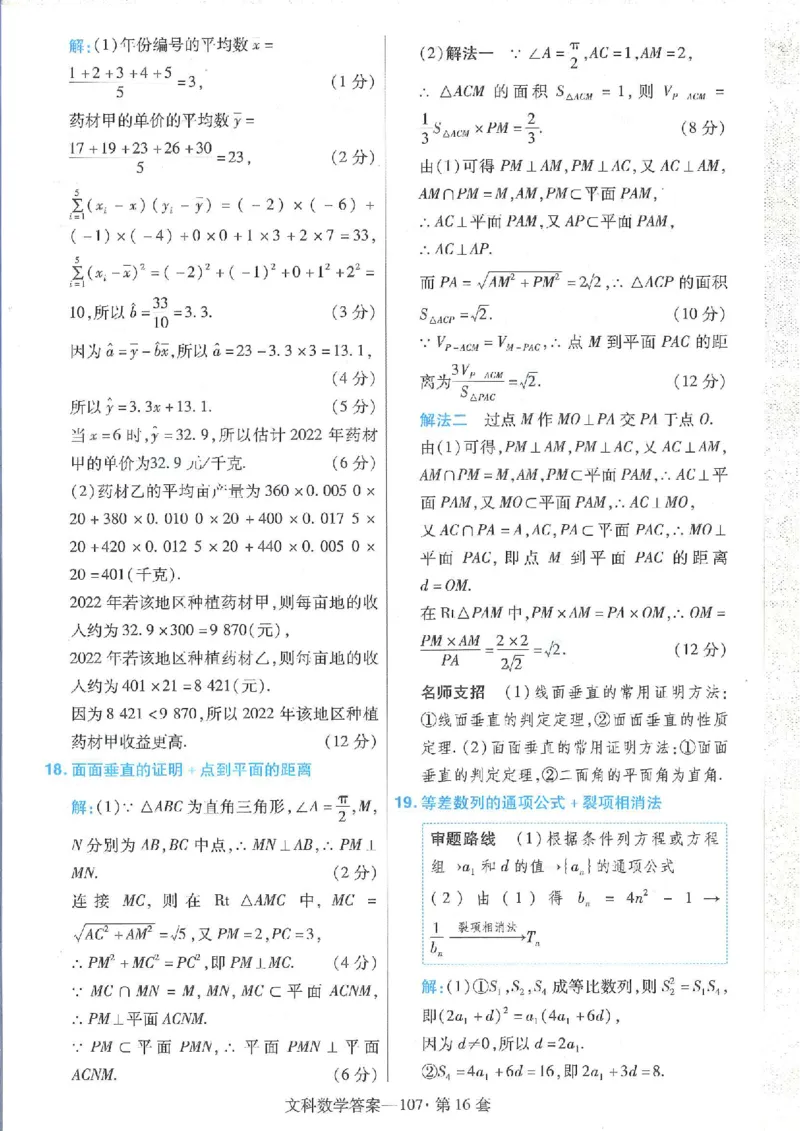 解:(1)年份编号的平均数x̄ =
(1+2+3+4+5)/5 =3, (1分)
药材甲的单价的平均数ȳ =
(17+19+23+26+30)/5 =23, (2分)
∑_{i=1}^{5}(x_i - x̄)(y_i - ȳ) = (-2) × (-6) +
(-1)×(-4)+0×0+1×3+2×7=33,
∑_{i=1}^{5}(x_i-x̄)²=(-2)²+(-1)²+0+1²+2²=
10,所以b̂=33/10=3.3. (3分)
因为â=ȳ-b̂x̄,所以â=23-3.3×3=13.1,
(4分)
所以ŷ=3.3x+13.1. (5分)
当x=6时,ŷ=32.9,所以估计2022年药材
甲的单价为32.9元/千克. (6分)
(2)药材乙的平均亩产量为360×0.005 0×
20+380×0.010 0×20+400×0.017 5×
20+420×0.012 5×20+440×0.005 0×
20=401(千克).
2022年若该地区种植药材甲,则每亩地的收
入约为32.9×300=9 870(元),
2022年若该地区种植药材乙,则每亩地的收
入约为401×21=8 421(元).
因为8 421<9 870,所以2022年该地区种植
药材甲收益更高. (12分)
18.面面垂直的证明+点到平面的距离
解:(1)∵△ABC为直角三角形,∠A=π/2,M,
N分别为AB,BC中点,∴MN⊥AB,∴PM⊥
MN. (2分)
连接 MC, 则在 Rt△AMC 中, MC =
√(AC²+AM²)=√5,又PM=2,PC=3,
∴PM²+MC²=PC²,即PM⊥MC. (4分)
∵ MC∩MN = M, MN, MC⊂平面ACNM,
∴PM⊥平面ACNM.
∵ PM⊂平面PMN,∴ 平面PMN⊥平面
ACNM. (6分)
(2)解法一 ∵∠A=π/2,AC=1,AM=2,
∴ △ACM 的面积 S_{△ACM} = 1,则 V_{P-ACM} =
1/3 S_{△ACM}×PM=2/3. (8分)
由(1)可得PM⊥AM,PM⊥AC,又AC⊥AM,
AM∩PM=M,AM,PM⊂平面PAM,
∴AC⊥平面PAM,又AP⊂平面PAM,
∴AC⊥AP.
而PA=√(AM²+PM²)=2√2,∴△ACP的面积
S_{△ACP}=√2. (10分)
∵V_{P-ACM}=V_{M-PAC},∴点M到平面PAC的距
离为3V_{P-ACM}/S_{△PAC}=√2. (12分)
解法二 过点M作MO⊥PA交PA于点O.
由(1)可得,PM⊥AM,PM⊥AC,又AC⊥AM,
AM∩PM=M,AM,PM⊂平面PAM,∴AC⊥平
面PAM,又MO⊂平面PAM,∴AC⊥MO,
又AC∩PA=A,AC,PA⊂平面PAC,∴MO⊥
平面 PAC, 即点 M 到平面 PAC 的距离
d=OM.
在Rt△PAM中,PM×AM=PA×OM,∴OM=
(PM×AM)/PA=(2×2)/(2√2)=√2. (12分)
名师支招 (1)线面垂直的常用证明方法:
①线面垂直的判定定理,②面面垂直的性质
定理.(2)面面垂直的常用证明方法:①面面
垂直的判定定理,②二面角的平面角为直角.
19.等差数列的通项公式+裂项相消法
审题路线 (1)根据条件列方程或方程
组→a₁和d的值→{a_n}的通项公式
(2) 由 (1) 得 b_n = 4n² - 1 →
1/b_n 裂项相消法→T_n
解:(1)①S₁,S₂,S₄成等比数列,则S₂²=S₁S₄,
即(2a₁+d)²=a₁(4a₁+6d),
因为d≠0,所以d=2a₁.
②S₄=4a₁+6d=16,即2a₁+3d=8.
文科数学答案—107·第16套